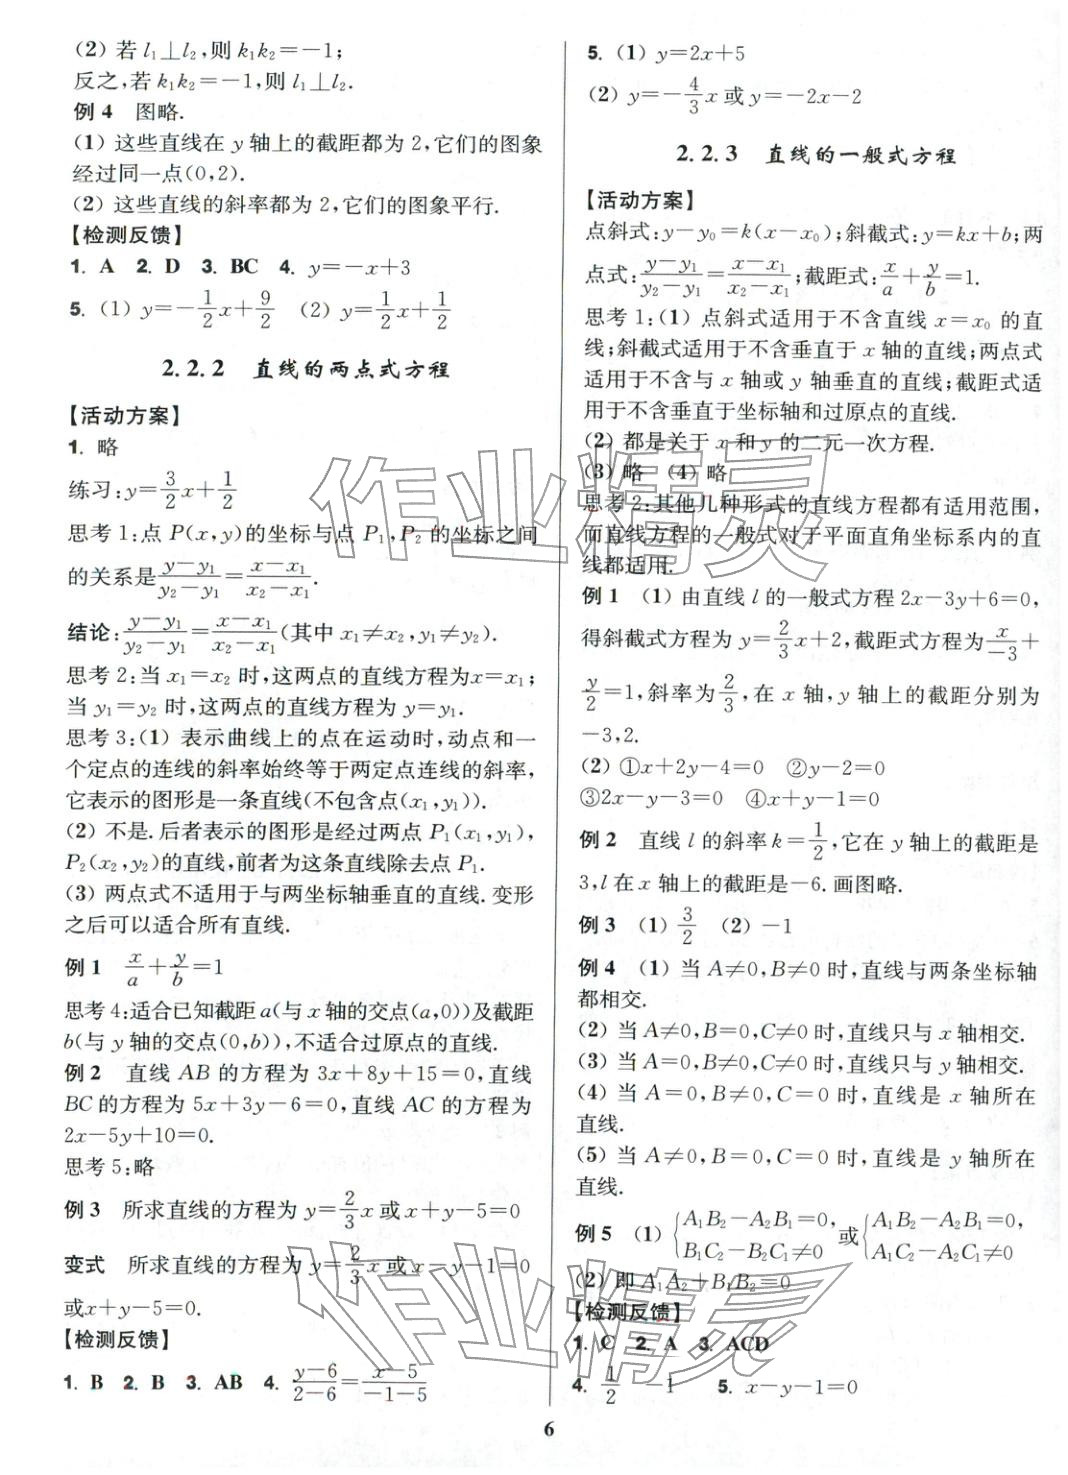 (2) 若 l₁⊥l₂,则 k₁k₂=−1;
反之,若 k₁k₂=−1,则 l₁⊥l₂.
例 4 图略.
(1) 这些直线在 y 轴上的截距都为 2,它们的图象
经过同一点(0,2).
(2) 这些直线的斜率都为 2,它们的图象平行.
【检测反馈】
1. A 2. D 3. BC 4. y=−x+3
5. (1) y=−1/2x+9/2 (2) y=1/2x+1/2
2.2.2 直线的两点式方程
【活动方案】
1. 略
练习:y=3/2x+1/2
思考 1:点 P(x,y)的坐标与点 P₁,P₂ 的坐标之间
的关系是(y−y₁)/(y₂−y₁)=(x−x₁)/(x₂−x₁).
结论:(y−y₁)/(y₂−y₁)=(x−x₁)/(x₂−x₁)(其中 x₁≠x₂,y₁≠y₂).
思考 2:当 x₁=x₂ 时,这两点的直线方程为x=x₁;
当 y₁=y₂ 时,这两点的直线方程为 y=y₁.
思考 3:(1) 表示曲线上的点在运动时,动点和一
个定点的连线的斜率始终等于两定点连线的斜率,
它表示的图形是一条直线(不包含点(x₁,y₁)).
(2) 不是.后者表示的图形是经过两点 P₁(x₁,y₁),
P₂(x₂,y₂)的直线,前者为这条直线除去点 P₁.
(3) 两点式不适用于与两坐标轴垂直的直线. 变形
之后可以适合所有直线.
例 1 x/a+y/b=1
思考 4:适合已知截距 a(与 x 轴的交点(a,0))及截距
b(与 y 轴的交点(0,b)),不适合过原点的直线.
例 2 直线 AB 的方程为 3x+8y+15=0,直线
BC 的方程为 5x+3y−6=0,直线 AC 的方程为
2x−5y+10=0.
思考 5:略
例 3 所求直线的方程为 y=2/3x 或 x+y−5=0
变式 所求直线的方程为 y=2/3x 或x−y−1=0
或x+y−5=0.
【检测反馈】
1. B 2. B 3. AB 4. (y−6)/(2−6)=(x−5)/(−1−5)
5. (1) y=2x+5
(2) y=−4/3x 或 y=−2x−2
2.2.3 直线的一般式方程
【活动方案】
点斜式:y−y₀=k(x−x₀);斜截式:y=kx+b;两
点式:(y−y₁)/(y₂−y₁)=(x−x₁)/(x₂−x₁);截距式:x/a+y/b=1.
思考 1:(1) 点斜式适用于不含直线 x=x₀ 的直
线;斜截式适用于不含垂直于 x 轴的直线;两点式
适用于不含与 x 轴或 y 轴垂直的直线;截距式适
用于不含垂直于坐标轴和过原点的直线.
(2) 都是关于 x 和 y 的二元一次方程.
(3) 略 (4) 略
思考 2:其他几种形式的直线方程都有适用范围,
而直线方程的一般式对于平面直角坐标系内的直
线都适用.
例 1 (1) 由直线 l 的一般式方程 2x−3y+6=0,
得斜截式方程为 y=2/3x+2,截距式方程为x/−3+
y/2=1,斜率为2/3,在 x 轴,y 轴上的截距分别为
−3,2.
(2) ①x+2y−4=0 ②y−2=0
③2x−y−3=0 ④x+y−1=0
例 2 直线 l 的斜率 k=1/2,它在 y 轴上的截距是
3,l 在 x 轴上的截距是−6. 画图略.
例 3 (1) 3/2 (2) −1
例 4 (1) 当 A≠0,B≠0 时,直线与两条坐标轴
都相交.
(2) 当 A≠0,B=0,C≠0 时,直线只与 x 轴相交.
(3) 当 A=0,B≠0,C≠0 时,直线只与 y 轴相交.
(4) 当 A=0,B≠0,C=0 时,直线是 x 轴所在
直线.
(5) 当 A≠0,B=0,C=0 时,直线是 y 轴所在
直线.
例 5 (1) {A₁B₂−A₂B₁=0, B₁C₂−B₂C₁≠0 或{A₁B₂−A₂B₁=0, A₁C₂−A₂C₁≠0
(2) 即 A₁A₂+B₁B₂=0
【检测反馈】
1. C 2. A 3. ACD
4. 1/2 −1 5. x−y−1=0
6
作业精灵
作业精灵